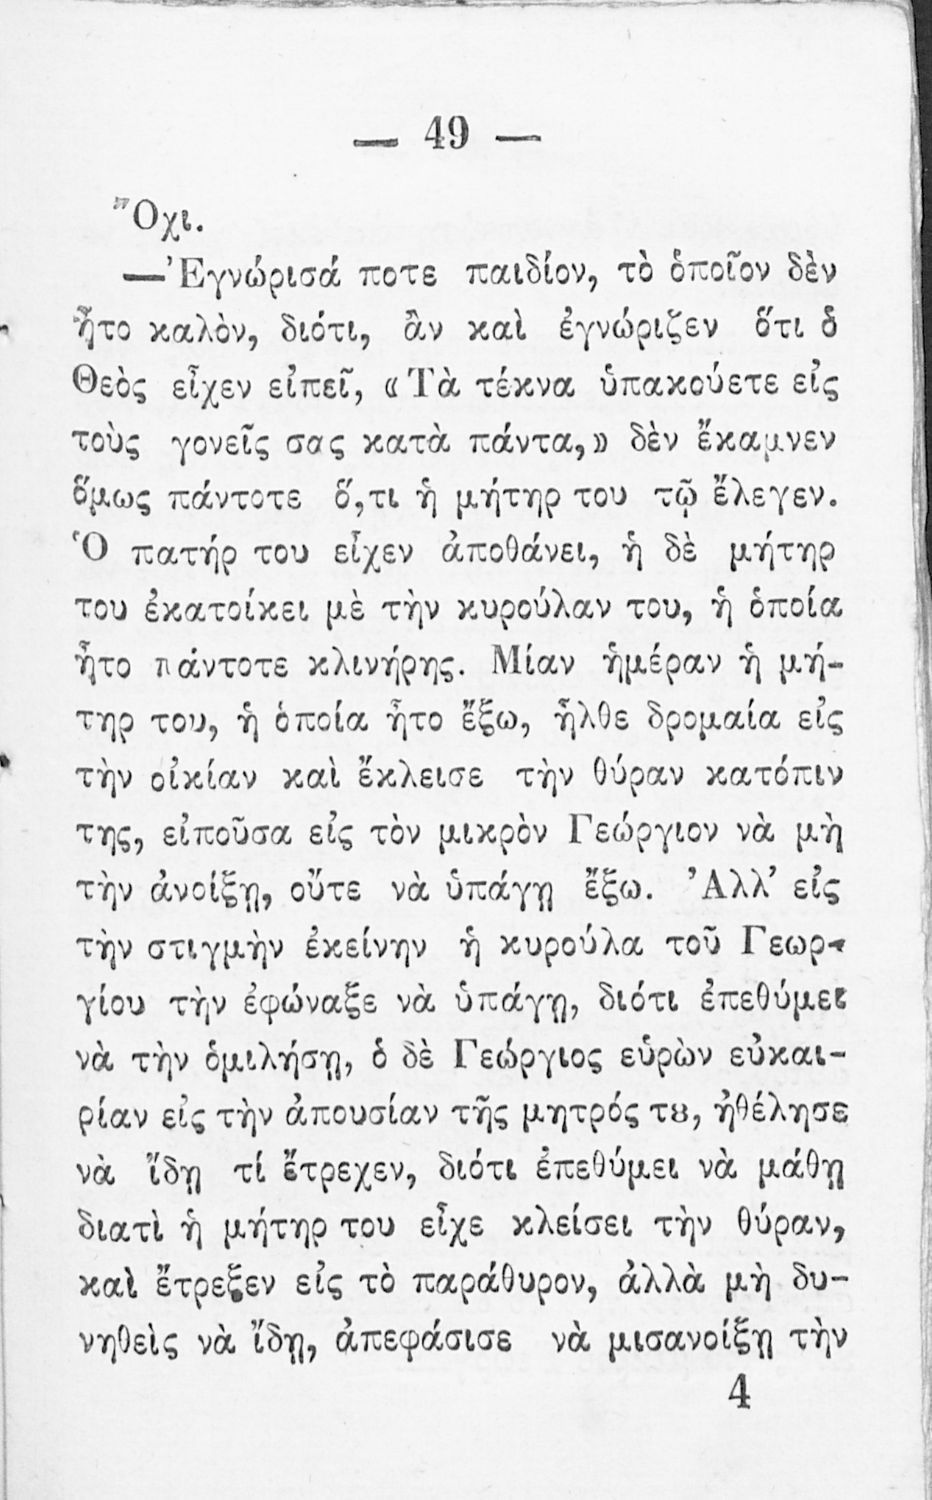 — 49 —
Ὄχι.
—Ἐγνώρισά ποτε παιδίον, τὸ ὁποῖον δὲν
ἦτο καλὸν, διότι, ἂν καὶ ἐγνώριζεν ὅτι ὁ
Θεὸς εἶχεν εἰπεῖ, «Τὰ τέκνα ὑπακούετε εἰς
τοὺς γονεῖς σας κατὰ πάντα,» δὲν ἔκαμνεν
ὅμως πάντοτε ὅ,τι ἡ μήτηρ του τῷ ἔλεγεν.
Ὁ πατήρ του εἶχεν ἀποθάνει, ἡ δὲ μήτηρ
του ἐκατοίκει μὲ τὴν κυρούλαν του, ἡ ὁποία
ἦτο πάντοτε κλινήρης. Μίαν ἡμέραν ἡ μή-
τηρ του, ἡ ὁποία ἦτο ἔξω, ἦλθε δρομαία εἰς
τὴν οἰκίαν καὶ ἔκλεισε τὴν θύραν κατόπιν
της, εἰποῦσα εἰς τὸν μικρὸν Γεώργιον νὰ μὴ
τὴν ἀνοίξῃ, οὔτε νὰ ὑπάγῃ ἔξω. Ἀλλ’ εἰς
τὴν στιγμὴν ἐκείνην ἡ κυρούλα τοῦ Γεωρ-
γίου τὴν ἐφώναξε νὰ ὑπάγῃ, διότι ἐπεθύμει
νὰ τὴν ὁμιλήσῃ, ὁ δὲ Γεώργιος εὑρὼν εὐκαι-
ρίαν εἰς τὴν ἀπουσίαν τῆς μητρός τȣ, ἠθέλησε
νὰ ἴδῃ τί ἔτρεχεν, διότι ἐπεθύμει νὰ μάθῃ
διατὶ ἡ μήτηρ του εἶχε κλείσει τὴν θύραν,
καὶ ἔτρεξεν εἰς τὸ παράθυρον, ἀλλὰ μὴ δυ-
νηθεὶς νὰ ἴδῃ, ἀπεφάσισε νὰ μισανοίξῃ τὴν
4